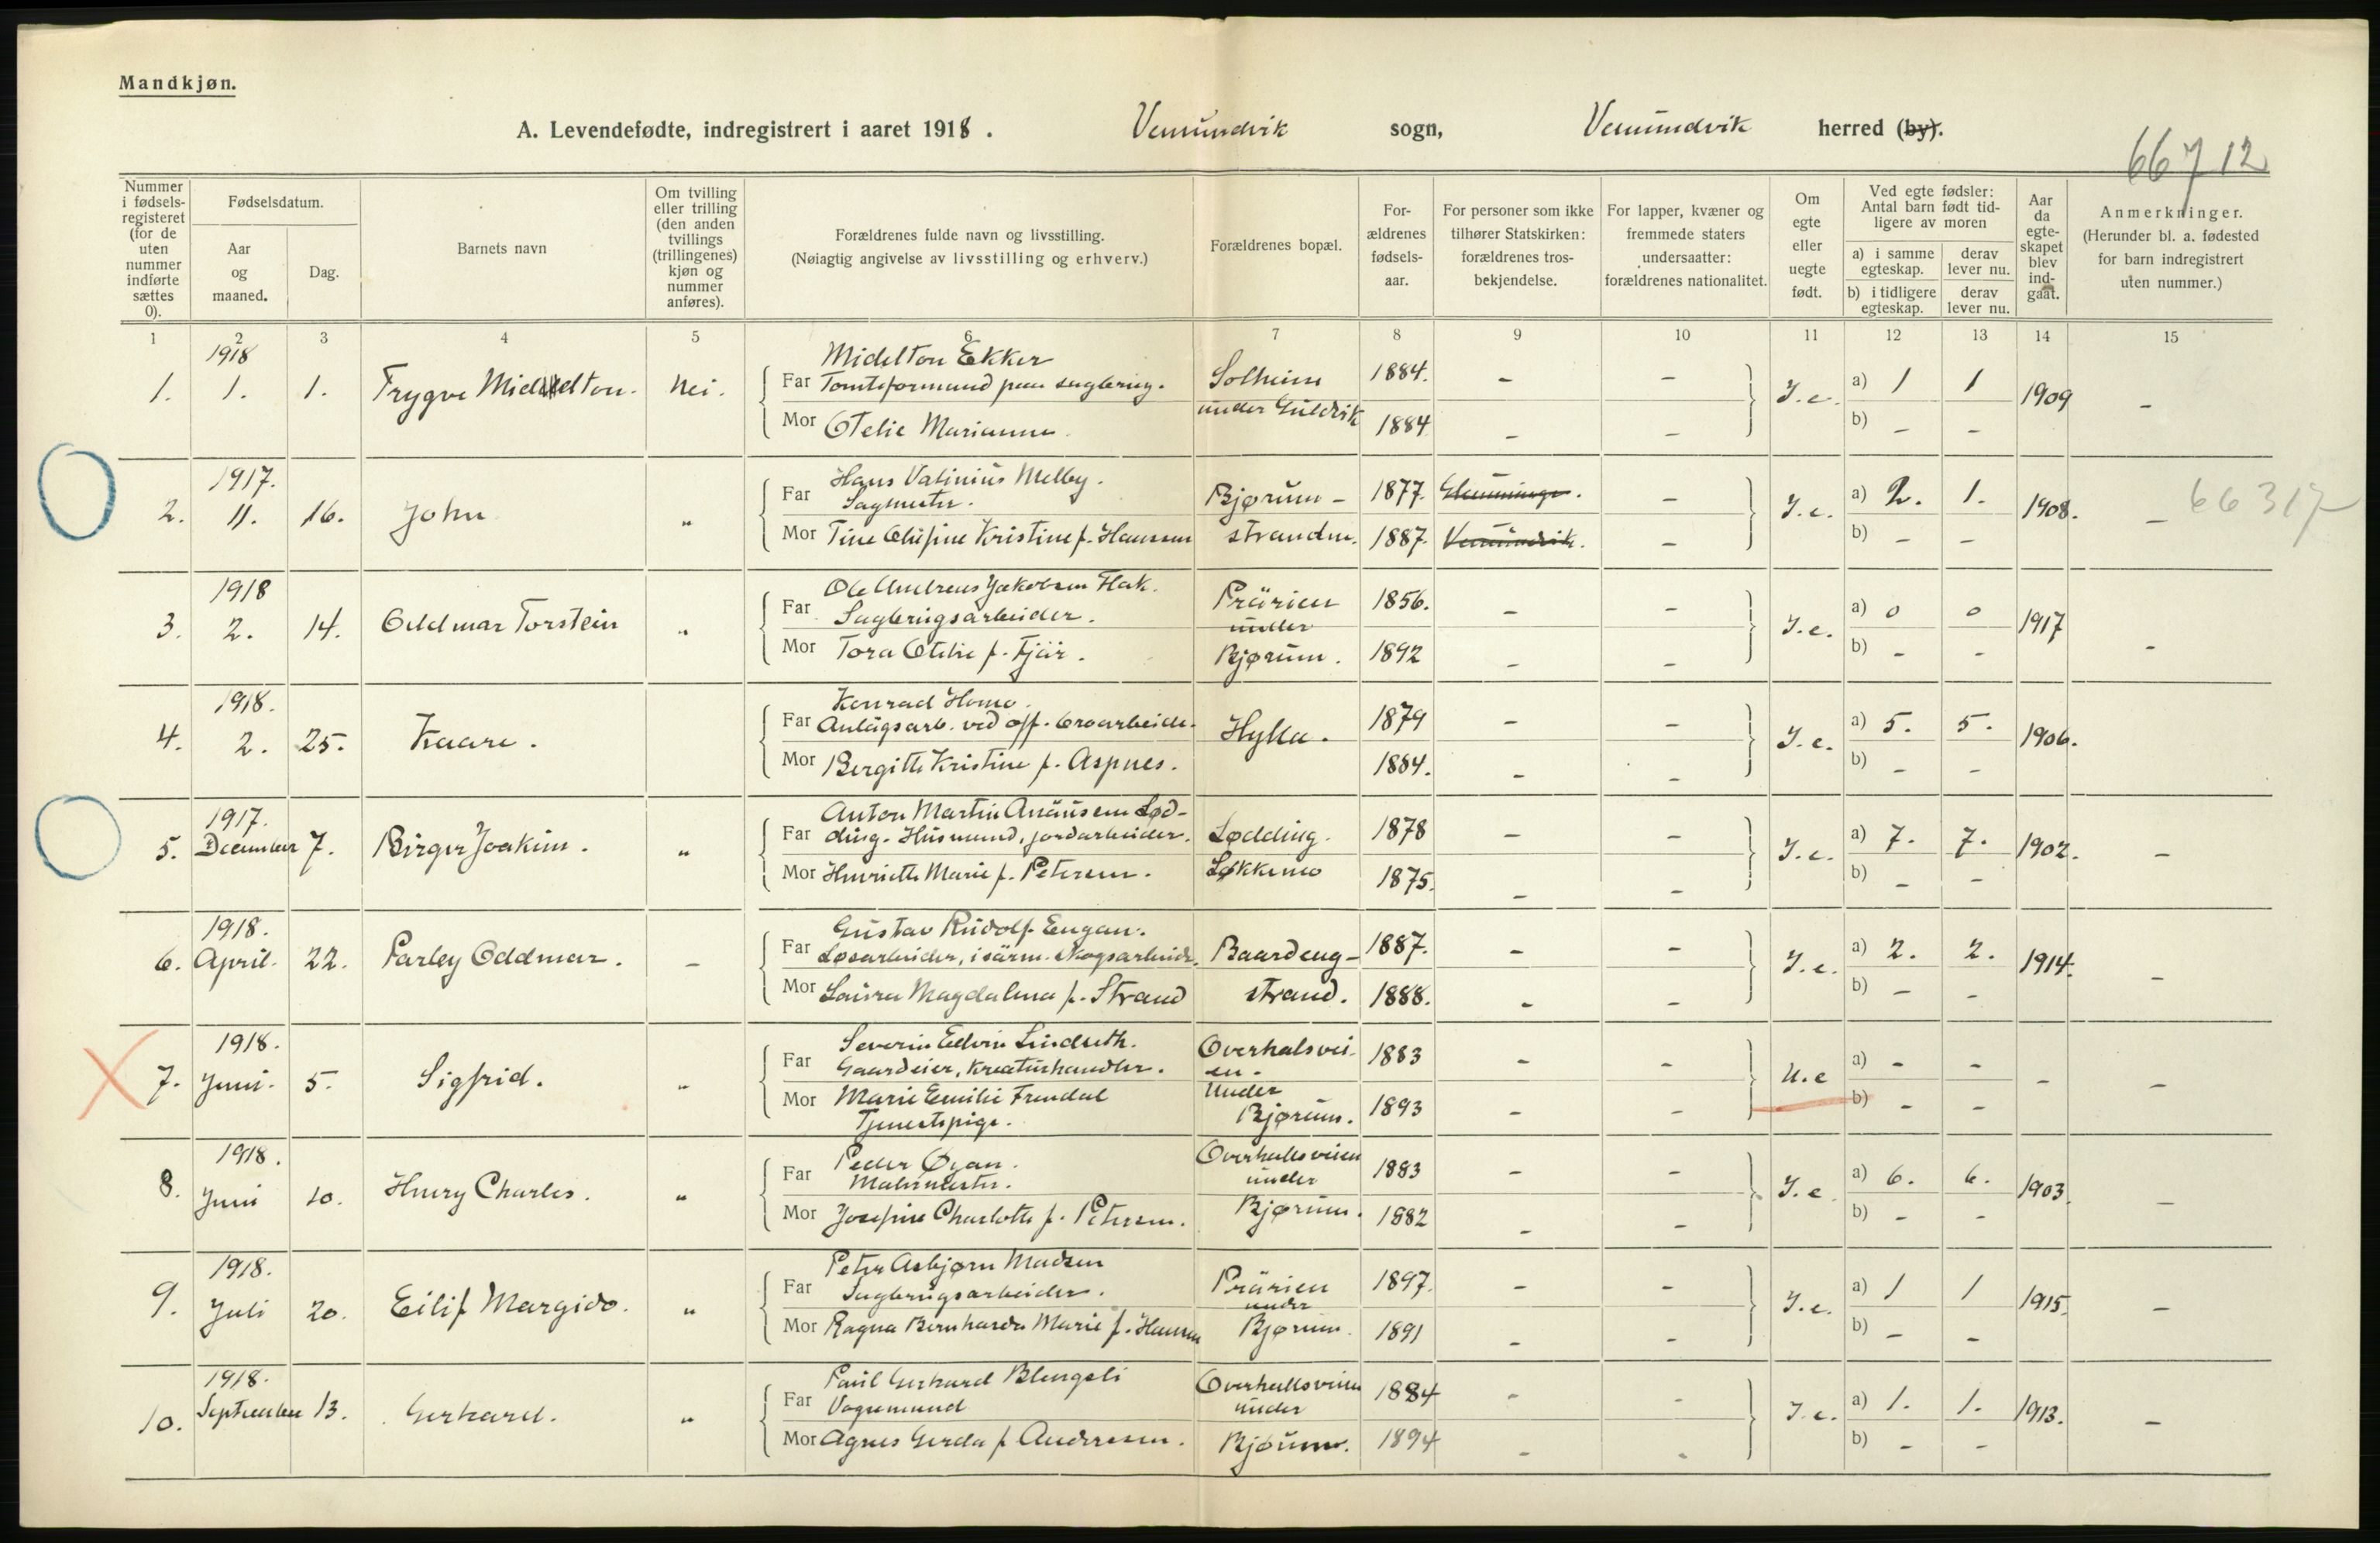 Mandkjøn.
A. Levendefødte, indregistrert i aaret 1918. Vemundvik sogn, Vemundvik herred (by).
66712
Nummer i fødselsregisteret (for de uten nummer indførte sættes 0).
Fødselsdatum.
Aar og maaned.
Dag.
Barnets navn
Om tvilling eller trilling (den anden tvillings (trillingenes) kjøn og nummer anføres).
Forældrenes fulde navn og livsstilling.
(Nøiagtig angivelse av livsstilling og erhverv.)
Forældrenes bopæl.
For-ældrenes fødsels-aar.
For personer som ikke tilhører Statskirken: forældrenes tros-bekjendelse.
For lapper, kvæner og fremmede staters undersaatter: forældrenes nationalitet.
Om egte eller uegte født.
Ved egte fødsler: Antal barn født tid-ligere av moren
a) i samme egteskap.
derav lever nu.
b) i tidligere egteskap.
derav lever nu.
Aar da egte-skapet blev ind-gaat.
Anmerkninger.
(Herunder bl. a. fødested for barn indregistrert uten nummer.)
1 2 3 4 5 6 7 8 9 10 11 12 13 14 15
1918 Midelton Ekker
1. 1. 1. Trygve Middelton. Nei. Far Tomteformand paa sagbrug. Solheim 1884. - - I.e. a) 1 1 1909 -
Mor Otelie Marianne under Guldvik 1884 - - b) - -
1917. Hans Valinius Melby.
2. 11. 16. John " Far Sagmester. Bjørum- 1877. - I.e. a) 2. 1. 1908. - 66317
Mor Tine Olüfine Kristine f. Hanssen strandn. 1887. Vemundvik. - b) - -
1918 Ole Andreas Jakobsen Flak.
3. 2. 14. Oddmar Torstein " Far Sagbrugsarbeider. Prärien under 1856. - - I.e. a) 0 0 1917 -
Mor Tora Otelie f. Fjär. Bjørum. 1892 - - b) - -
1918. Konrad Homo.
4. 2. 25. Kaare. Far Anlägsarb. ved off. broarbeide. Hylla. 1879 - - I.e. a) 5. 5. 1906.
Mor Bergitte Kristine f. Aspnes. 1884. - - b) - -
1917. Anton Martin Anäusen Lød-
5. December 7. Birger Joakim. " Far ding. Husmand, jordarbeider. Lødding. 1878 - - I.e. a) 7. 7. 1902. -
Mor Henriette Marie f. Petersen. Løkkemo 1875. - - b) - -
1918. Gustav Rudolf Engan.
6. April. 22. Parley Oddmar. - Far Løsarbeider, isärm. skogsarbeide. Baardeng- 1887. - - I.e. a) 2. 2. 1914. -
Mor Laura Magdalena f. Strand strand. 1888. - - b) - -
1918. Severin Edvin Lindseth.
7. Juni. 5. Sigfrid. " Far Gaardeier, Kreaturhandler. Overhalsvei-en. 1883 - - U.e a) - - - -
Mor Marie Emilie Frendal Under 1893 - - b) - -
Tjenestepige. Bjørum.
1918. Peder Øyan.
8. Juni 10. Henry Charles. " Far Malermester. Overhallsveien under 1883 - - I.e. a) 6. 6. 1903. -
Mor Josefine Charlotte f. Petersen. Bjørum. 1882 - - b) - -
1918. Peter Asbjørn Madsen
9. Juli 20. Eilif Margido. " Far Sagbrugsarbeider. Prärien under 1897. - - I.e. a) 1 1 1915. -
Mor Ragna Bernharda Marie f. Hansen Bjørum. 1891 - - b) - -
1918. Paul Gerhard Blengsli
10. September 13. Gerhard. " Far Vognmand Overhallsveien under 1884 - - I.e. a) 1. 1. 1913. -
Mor Agnes Gerda f. Andresen. Bjørum. 1894 - - b) - -